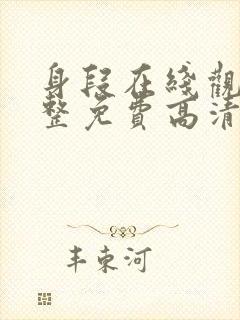 身段在綫觀
整免費高清
丰束河